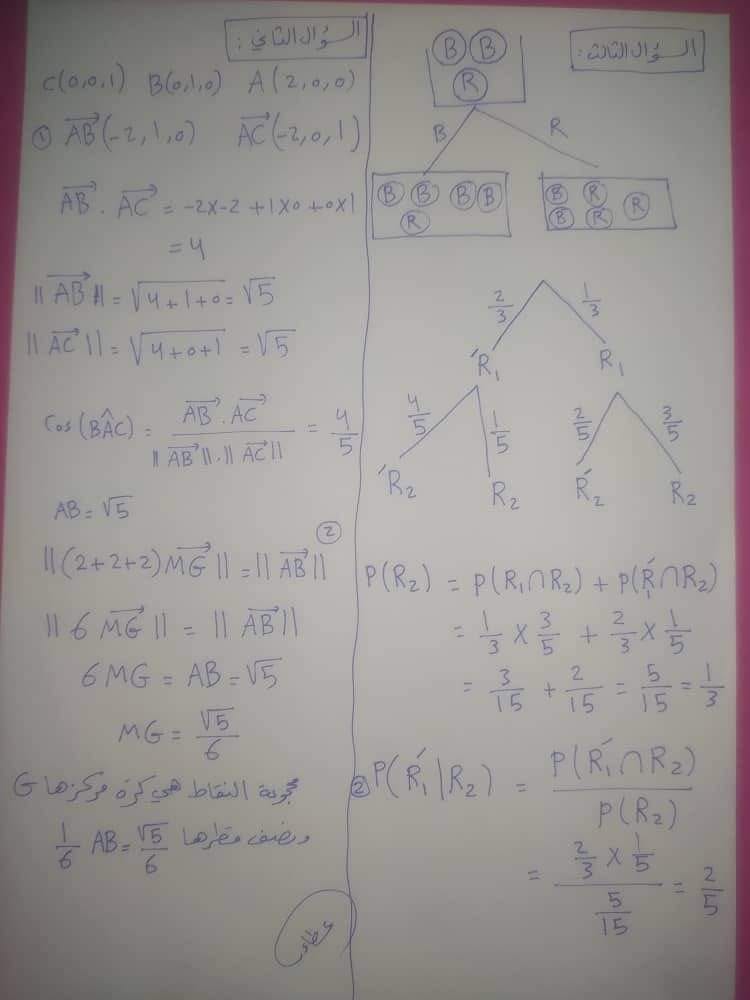 السؤال الثاني:
C(0,0,1) B(0,1,0) A(2,0,0)
① AB(-2,1,0) AC(-2,0,1)
AB . AC = -2×-2 + 1×0 + 0×1
= 4
|| AB || = √4+1+0 = √5
|| AC || = √4+0+1 = √5
Cos(BÂC) = AB . AC / || AB || . || AC || = 4/5
AB = √5
②
||(2+2+2) MG || = || AB ||
|| 6 MG || = || AB ||
6 MG = AB = √5
MG = √5/6
مجموعة النقاط هي كرة مركزها G
ونصف قطرها 1/6 AB = √5/6
السؤال الثالث:
B B
R
B R
B B B B
R
B R R
B R
2/3 1/3
Ŕ₁ R₁
4/5 1/5 2/5 3/5
Ŕ₂ R₂ Ŕ₂ R₂
P(R₂) = P(R₁∩R₂) + P(Ŕ₁∩R₂)
= 1/3 × 3/5 + 2/3 × 1/5
= 3/15 + 2/15 = 5/15 = 1/3
② P(Ŕ₁|R₂) = P(Ŕ₁∩R₂) / P(R₂)
= 2/3 × 1/5 / 5/15 = 2/5